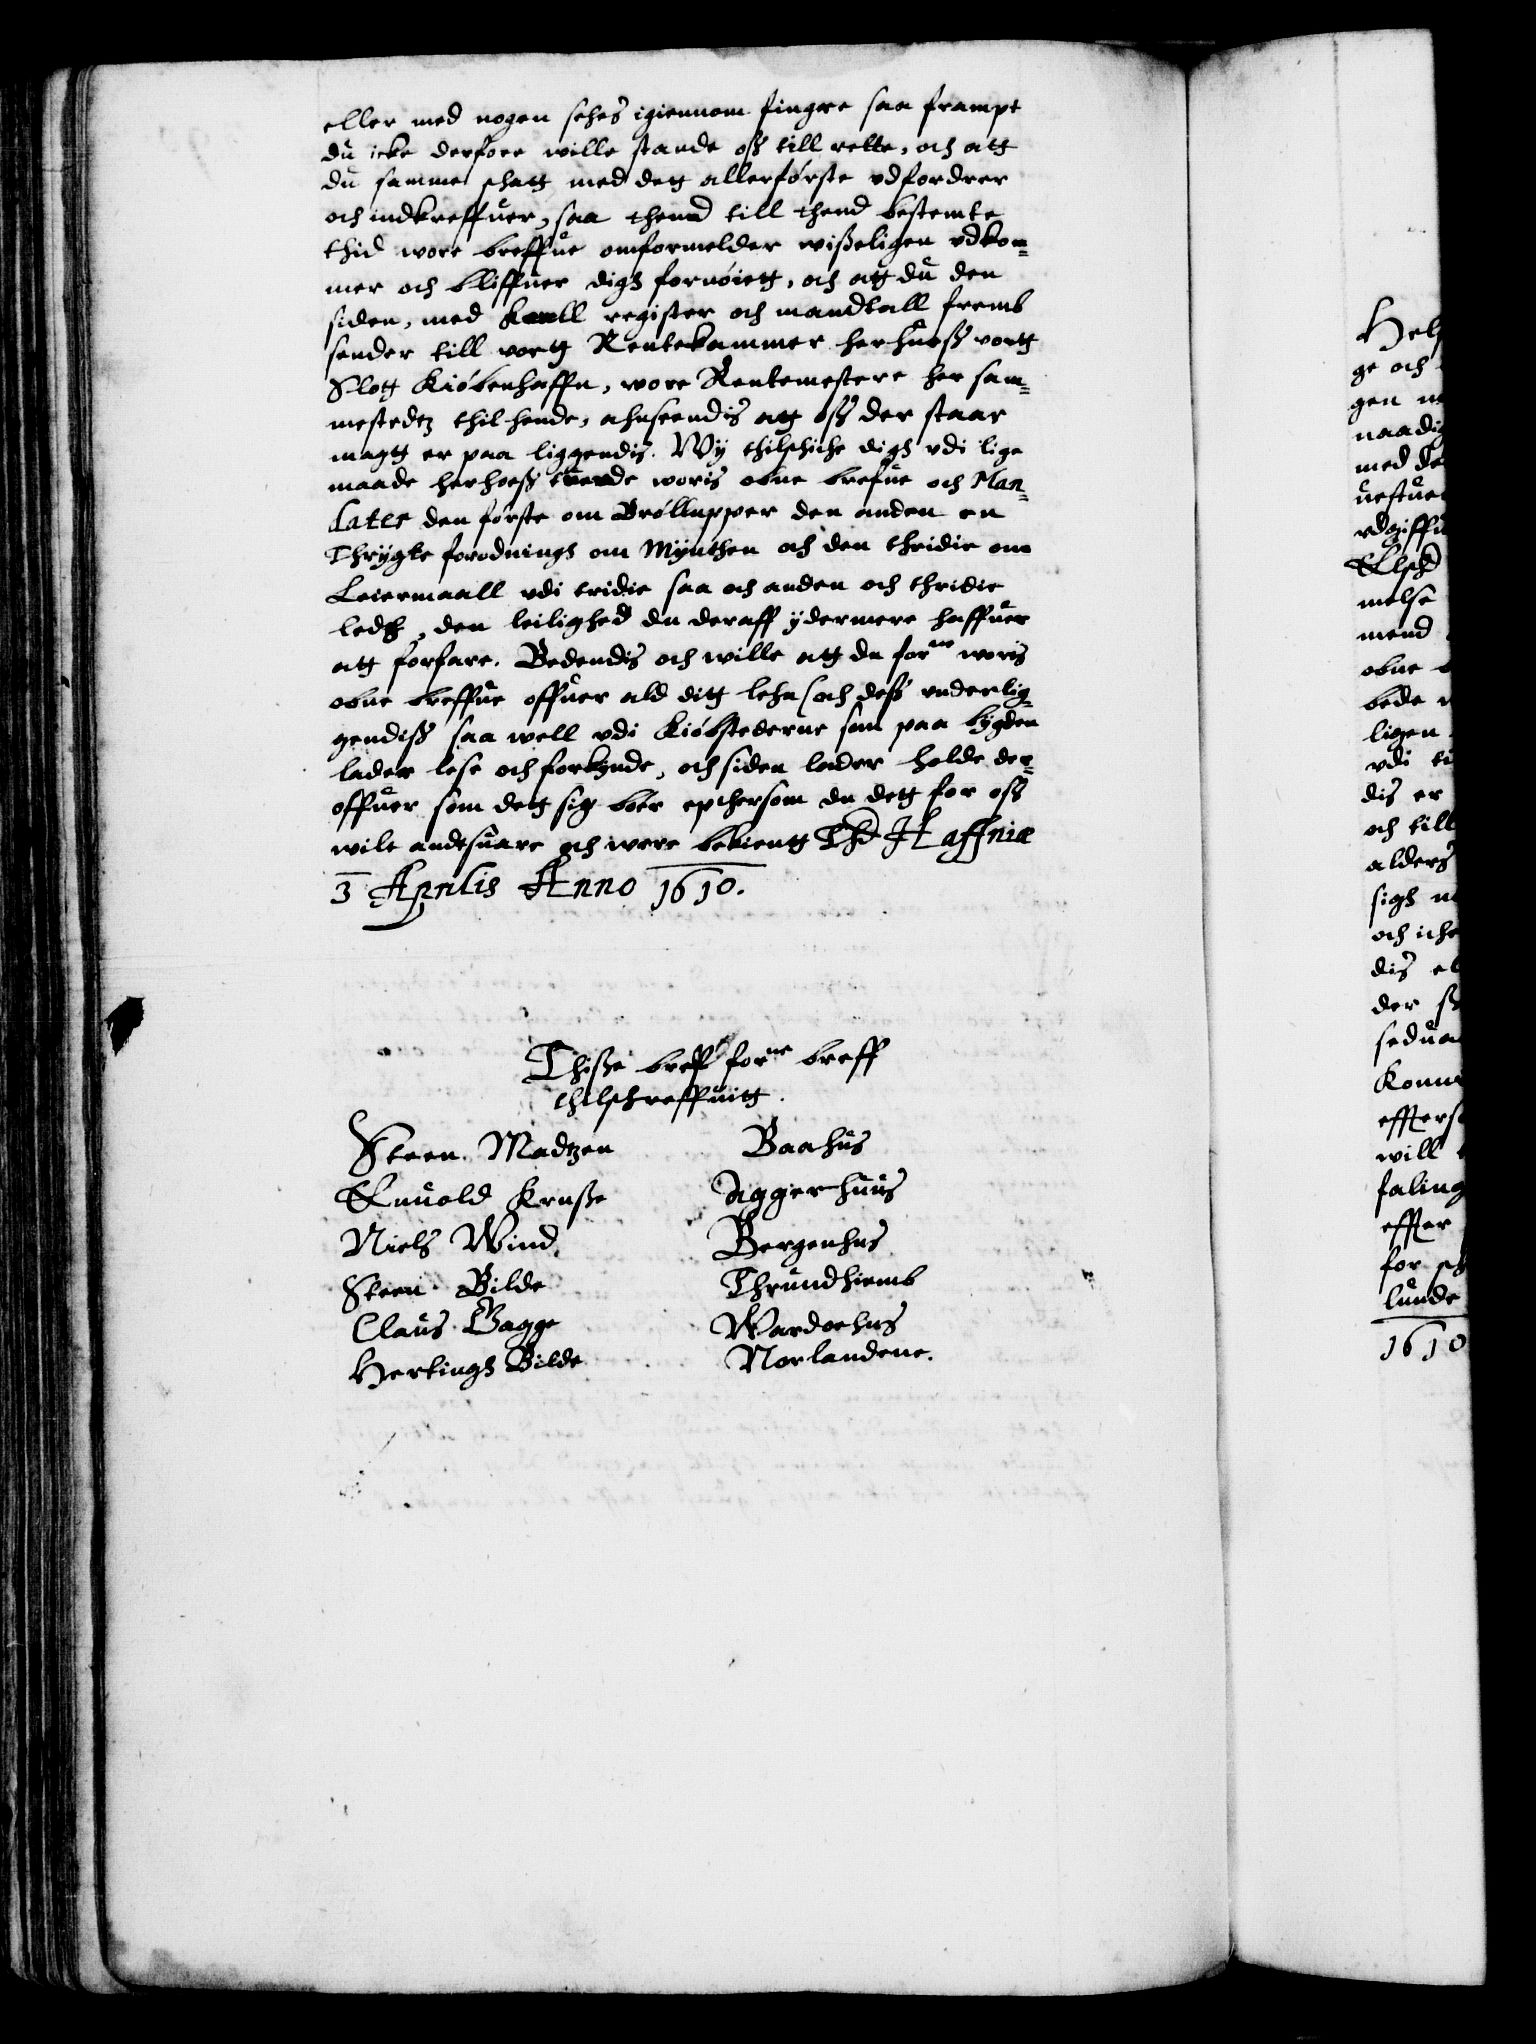 eller med nogen sehes igiennom fingre saa frampt
du icke derfore wille stande oß till rette, och att
du samme schatt med dett allerførste vdfordrer
och indkreffuer, saa thend till thend bestemte
thid wore breffue omformelder wißeligen vdkom=
mer och bliffuer digh fornøiett, och att du den
siden, med klar register och mandtall fremb
sender till vortt Rentekammer her huoß vortt
Slott Kiøbenhaffn, wore Rentemestere her sam=
mestedtz thil hende, ahnseendis att oß der staar
magtt er paa liggendis. Wy thilschiche digh vdi lige
maade herhoeß trende woris obne brefue och Man=
dater den første om Brøllupper den anden en
Thrygte forodningh om Mynthen och den thridie om
Leiermaall vdi tridie saa och anden och thridie
ledh, den leilighed du deraff ydermere haffuer
att forfare. Bedendis och wille att du forne woris
obne breffue offuer ald ditt lehn och deß vnderlig=
gendiß saa well vdi Kiøbstederne som paa bygden
lader lese och forkynde, och siden lader holde der=
offuer som dett sig bør epthersom du dett for oß
wilt andtsuare och were bekientt Thd Haffniæ
3 Aprilis Anno 1610.
Thiße breff forne breff
thilschreffuitt.
Steen Madtzen Baahus
Enuold Kruße Aggerhuus
Niels Wind Bergenhus
Steen Bilde Thrundhiemb
Claus Gagge Wardoehus
Hertingh Bilde Norlandene.
ge och
gen
naadig
med
mend
obne
bede
ligen
vdi
dis er
och till
alders
sigh
och iche
dis
der
will
effter
for
lunde
1610